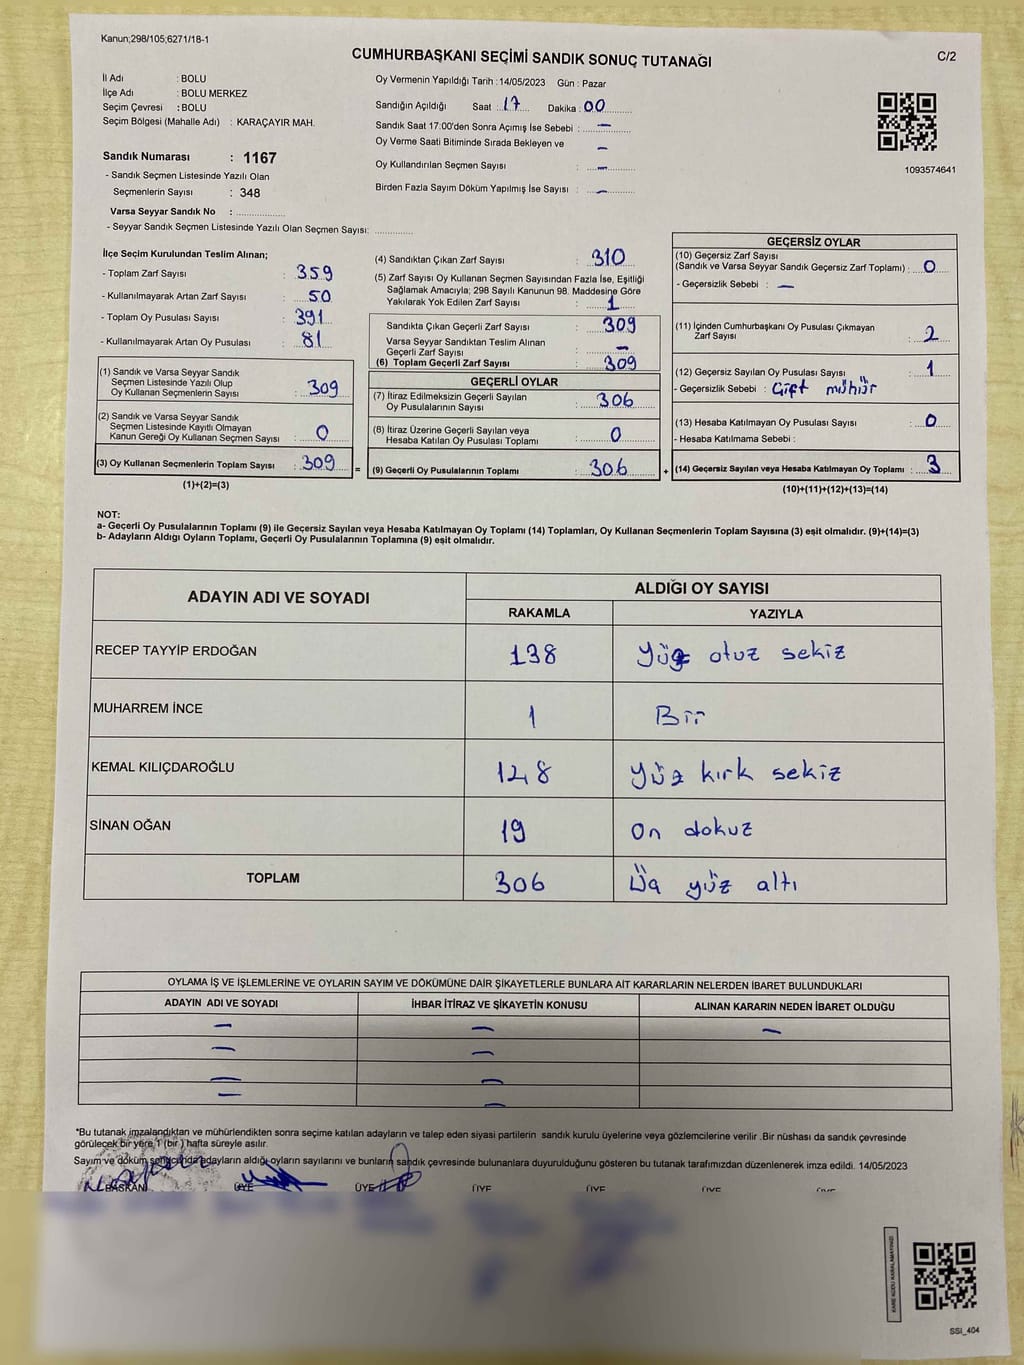 Kanun;298/105;6271/18-1
CUMHURBAŞKANI SEÇİMİ SANDIK SONUÇ TUTANAĞI
C/2
İl Adı : BOLU
İlçe Adı : BOLU MERKEZ
Seçim Çevresi : BOLU
Seçim Bölgesi (Mahalle Adı) : KARAÇAYIR MAH.
Sandık Numarası : 1167
- Sandık Seçmen Listesinde Yazılı Olan
Seçmenlerin Sayısı : 348
Varsa Seyyar Sandık No : ................
- Seyyar Sandık Seçmen Listesinde Yazılı Olan Seçmen Sayısı: ............
Oy Vermenin Yapıldığı Tarih :14/05/2023 Gün : Pazar
Sandığın Açıldığı Saat : 17 Dakika : 00
Sandık Saat 17:00'den Sonra Açımış İse Sebebi : —
Oy Verme Saati Bitiminde Sırada Bekleyen ve —
Oy Kullandırılan Seçmen Sayısı : —
Birden Fazla Sayım Döküm Yapılmış İse Sayısı : —
1093574641
İlçe Seçim Kurulundan Teslim Alınan;
- Toplam Zarf Sayısı : 359
- Kullanılmayarak Artan Zarf Sayısı : 50
- Toplam Oy Pusulası Sayısı : 391
- Kullanılmayarak Artan Oy Pusulası : 81
(1) Sandık ve Varsa Seyyar Sandık
Seçmen Listesinde Yazılı Olup
Oy Kullanan Seçmenlerin Sayısı : 309
(2) Sandık ve Varsa Seyyar Sandık
Seçmen Listesinde Kayıtlı Olmayan
Kanun Gereği Oy Kullanan Seçmen Sayısı : 0
(3) Oy Kullanan Seçmenlerin Toplam Sayısı : 309
(1)+(2)=(3)
(4) Sandıktan Çıkan Zarf Sayısı : 310
(5) Zarf Sayısı Oy Kullanan Seçmen Sayısından Fazla İse, Eşitliği
Sağlamak Amacıyla; 298 Sayılı Kanunun 98. Maddesine Göre
Yakılarak Yok Edilen Zarf Sayısı : 1
Sandıkta Çıkan Geçerli Zarf Sayısı : 309
Varsa Seyyar Sandıktan Teslim Alınan
Geçerli Zarf Sayısı : —
(6) Toplam Geçerli Zarf Sayısı : 309
GEÇERLİ OYLAR
(7) İtiraz Edilmeksizin Geçerli Sayılan
Oy Pusulalarının Sayısı : 306
(8) İtiraz Üzerine Geçerli Sayılan veya
Hesaba Katılan Oy Pusulası Toplamı : 0
= (9) Geçerli Oy Pusulalarının Toplamı : 306 +
GEÇERSİZ OYLAR
(10) Geçersiz Zarf Sayısı
(Sandık ve Varsa Seyyar Sandık Geçersiz Zarf Toplamı) : 0
- Geçersizlik Sebebi : —
(11) İçinden Cumhurbaşkanı Oy Pusulası Çıkmayan
Zarf Sayısı : 2
(12) Geçersiz Sayılan Oy Pusulası Sayısı : 1
- Geçersizlik Sebebi : Çift mühür
(13) Hesaba Katılmayan Oy Pusulası Sayısı : 0
- Hesaba Katılmama Sebebi :
(14) Geçersiz Sayılan veya Hesaba Katılmayan Oy Toplamı : 3
(10)+(11)+(12)+(13)=(14)
NOT:
a- Geçerli Oy Pusulalarının Toplamı (9) ile Geçersiz Sayılan veya Hesaba Katılmayan Oy Toplamı (14) Toplamları, Oy Kullanan Seçmenlerin Toplam Sayısına (3) eşit olmalıdır. (9)+(14)=(3)
b- Adayların Aldığı Oyların Toplamı, Geçerli Oy Pusulalarının Toplamına (9) eşit olmalıdır.
ADAYIN ADI VE SOYADI ALDIĞI OY SAYISI
RAKAMLA YAZIYLA
RECEP TAYYİP ERDOĞAN 138 Yüz otuz sekiz
MUHARREM İNCE 1 Bir
KEMAL KILIÇDAROĞLU 148 Yüz kırk sekiz
SİNAN OĞAN 19 On dokuz
TOPLAM 306 Üç yüz altı
OYLAMA İŞ VE İŞLEMLERİNE VE OYLARIN SAYIM VE DÖKÜMÜNE DAİR ŞİKAYETLERLE BUNLARA AİT KARARLARIN NELERDEN İBARET BULUNDUKLARI
ADAYIN ADI VE SOYADI İHBAR İTİRAZ VE ŞİKAYETİN KONUSU ALINAN KARARIN NEDEN İBARET OLDUĞU
— — —
— —
— —
— —
*Bu tutanak imzalandıktan ve mühürlendikten sonra seçime katılan adayların ve talep eden siyasi partilerin sandık kurulu üyelerine veya gözlemcilerine verilir .Bir nüshası da sandık çevresinde
görülecek bir yere 1 (bir ) hafta süreyle asılır.
Sayım ve döküm sonucunda adayların aldığı oyların sayılarını ve bunların sandık çevresinde bulunanlara duyurulduğunu gösteren bu tutanak tarafımızdan düzenlenerek imza edildi. 14/05/2023
BAŞKAN ÜYE ÜYE ÜYE ÜYE ÜYE ÜYE
KARE KODU KARALAMAYINIZ!
SSI_404